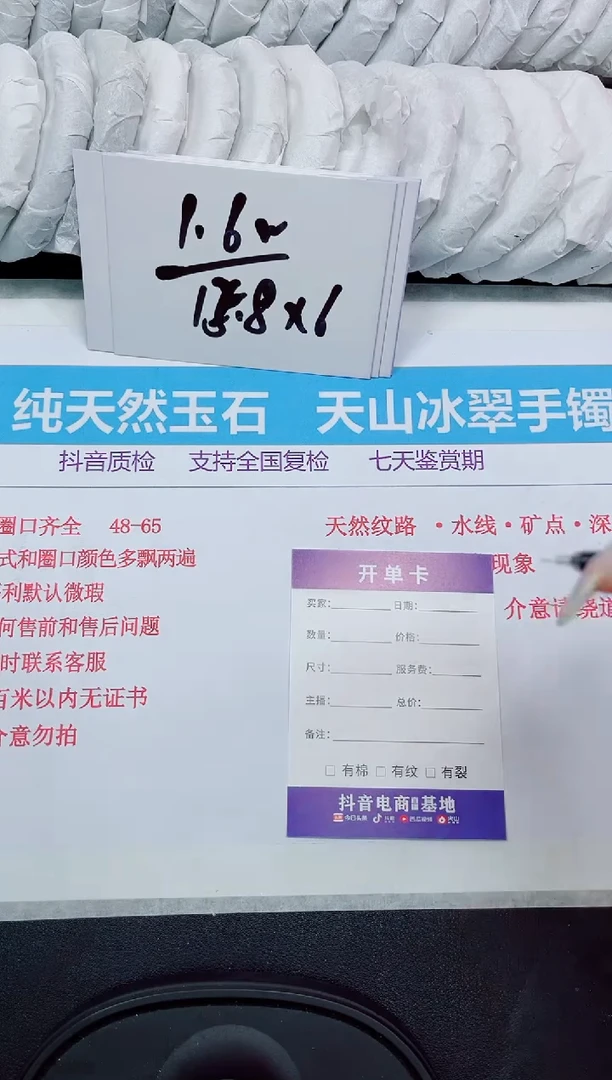 1.6w
8×6
纯天然玉石 天山冰翠手镯
抖音质检 支持全国复检 七天鉴赏期
圈口齐全 48-65
式和圈口颜色多飘两遍
利默认微瑕
何售前和售后问题
时联系客服
百米以内无证书
介意勿拍
天然纹路·水线·矿点·深
现象
介意请绕道
开单卡
买家: 日期:
数量: 价格:
尺寸: 服务费:
主播: 总价:
备注:
有棉 有纹 有裂
抖音电商 基地
今日头条 抖音 西瓜视频 火山